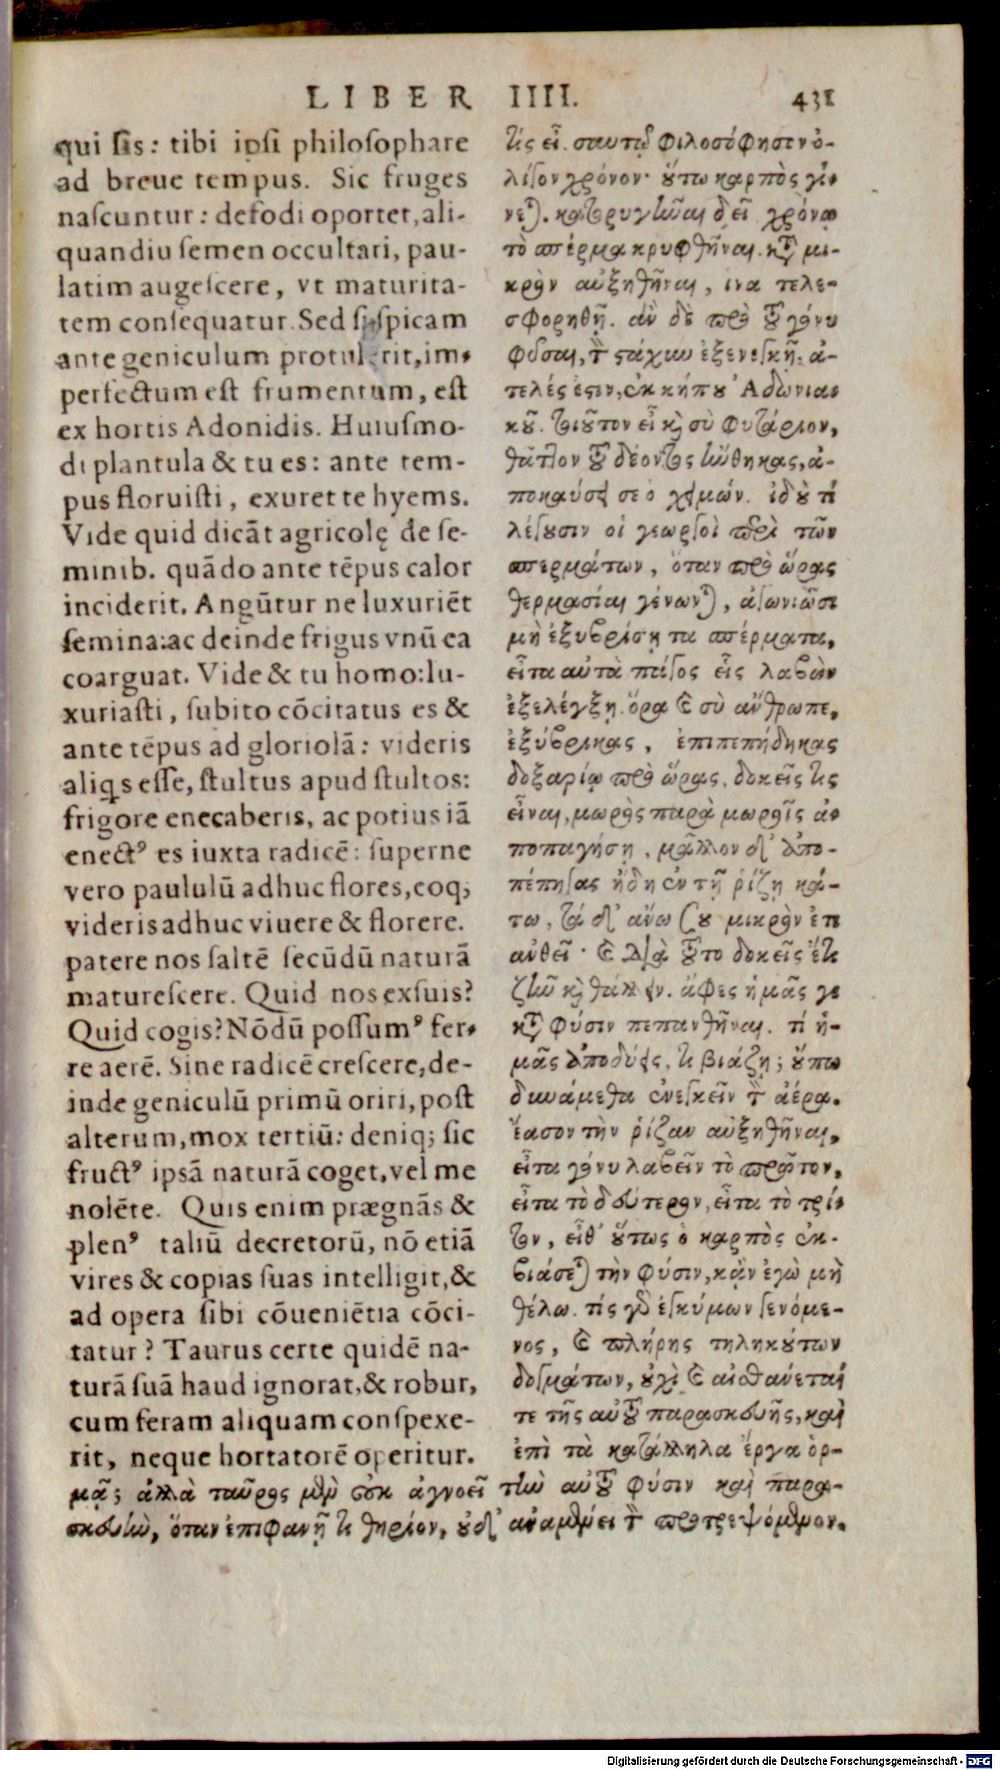 LIBER IIII. 431
qui ſis: tibi ipſi philoſophare
ad breue tempus. Sic fruges
naſcuntur: defodi oportet, ali-
quandiu ſemen occultari, pau-
latim augeſcere, vt maturita-
tem conſequatur. Sed ſi ſpicam
ante geniculum protulerit, im-
perfectum eſt frumentum, eſt
ex hortis Adonidis. Huiuſmo-
di plantula & tu es: ante tem-
pus floruiſti, exuret te hyems.
Vide quid dicāt agricolę de ſe-
minib. quādo ante tēpus calor
inciderit. Angūtur ne luxuriēt
ſemina: ac deinde frigus vnū ea
coarguat. Vide & tu homo: lu-
xuriaſti, ſubito cōcitatus es &
ante tēpus ad gloriolā: videris
aliqs eſſe, ſtultus apud ſtultos:
frigore enecaberis, ac potius iā
enectꝰ es iuxta radicē: ſuperne
vero paululū adhuc flores, eoq;
videris adhuc viuere & florere.
patere nos ſaltē ſecūdū naturā
matureſcere. Quid nos exſuis?
Quid cogis? Nōdū poſſumꝰ fer-
re aerē. Sine radicē creſcere, de-
inde geniculū primū oriri, poſt
alterum, mox tertiū: deniq; ſic
fructꝰ ipſā naturā coget, vel me
nolēte. Quis enim prægnās &
plenꝰ taliū decretorū, nō etiā
vires & copias ſuas intelligit, &
ad opera ſibi cōueniētia cōci-
tatur? Taurus certe quidē na-
turā ſuā haud ignorat, & robur,
cum feram aliquam conſpexe-
rit, neque hortatorē operitur.
τίς εἶ. σαυτῷ φιλοσόφησιν ὀ-
λίγον χρόνον· οὕτω καρπὸς γί-
νεται. κατορυγῶαι δεῖ χρόνῳ
τὸ σπέρμα κρυφθῆναι. κατὰ μι-
κρὸν αὐξηθῆναι, ινα τελε-
σφορηθῇ. ἀν δὲ πρὸ τοῦ γόνυ
φῦσαι, τὸν στάχιω ἐξενέγκῃ. ἀ-
τελές ἐστιν, ἐκ κήπου Ἀδωνια-
κοῦ. τοιοῦτον εἶ καὶ σὺ φυτάριον,
θᾶττον τοῦ δέοντος ἤνθηκας, ἀ-
ποκαύσει σε ὁ χειμών. ἰδοὺ τί
λέγουσιν οἱ γεωργοὶ περὶ τῶν
σπερμάτων, ὅταν πρὸ ὥρας
θερμασίαι γένωνται, ἀγωνιῶσι
μὴ ἐξυβρίσῃ τα σπέρματα,
εἶτα αὐτὰ πάγος εἷς λαβὼν
ἐξελέγξῃ. ὅρα καὶ σὺ ἄνθρωπε,
ἐξύβρικας, ἐπιπεπήδηκας
δοξαρίῳ πρὸ ὥρας. δοκεῖς τις
εἶναι, μωρὸς παρὰ μωροῖς ἀ-
ποπαγήσῃ, μᾶλλον δ' ἀπο-
πέπηγας ἤδη ἐν τῇ ῥίζῃ κά-
τω, τά δ' ἄνω σου μικρὸν ἐπ
ανθεῖ· καὶ διὰ τοῦτο δοκεῖς ἔτι
ζῆν καὶ θάλλειν. ἄφες ἡμᾶς γε
κατὰ φύσιν πεπανθῆναι. τί ἡ-
μᾶς ἀποδύεις, τι βιάζῃ; οὔπω
δυνάμεθα ἐνεγκεῖν τὸν ἀέρα.
ἔασον τὴν ῥίζαν αὐξηθῆναι,
εἶτα γόνυ λαβεῖν τὸ πρῶτον,
εἶτα τὸ δεύτερον, εἶτα τὸ τρί-
τον, εἶθ' οὕτως ὁ καρπὸς ἐκ-
βιάσεται τὴν φύσιν, κἂν ἐγὼ μὴ
θέλω. τίς γὰρ ἐγκύμων γενόμε-
νος, καὶ πλήρης τηλικούτων
δογμάτων, οὐχὶ καὶ αἰσθάνεται
τε τῆς αὐτοῦ παρασκευῆς, καὶ
ἐπὶ τὰ κατάλληλα ἔργα ὁρ-
μᾷ; ἀλλὰ ταῦρος μὲν οὐκ ἀγνοεῖ τὴν αὐτοῦ φύσιν καὶ παρα-
σκευὴν, ὅταν ἐπιφανῇ τι θηρίον, οὐδ' ἀναμένει τὸν προτρεψόμενον.
Digitalisierung gefördert durch die Deutsche Forschungsgemeinschaft - DFG